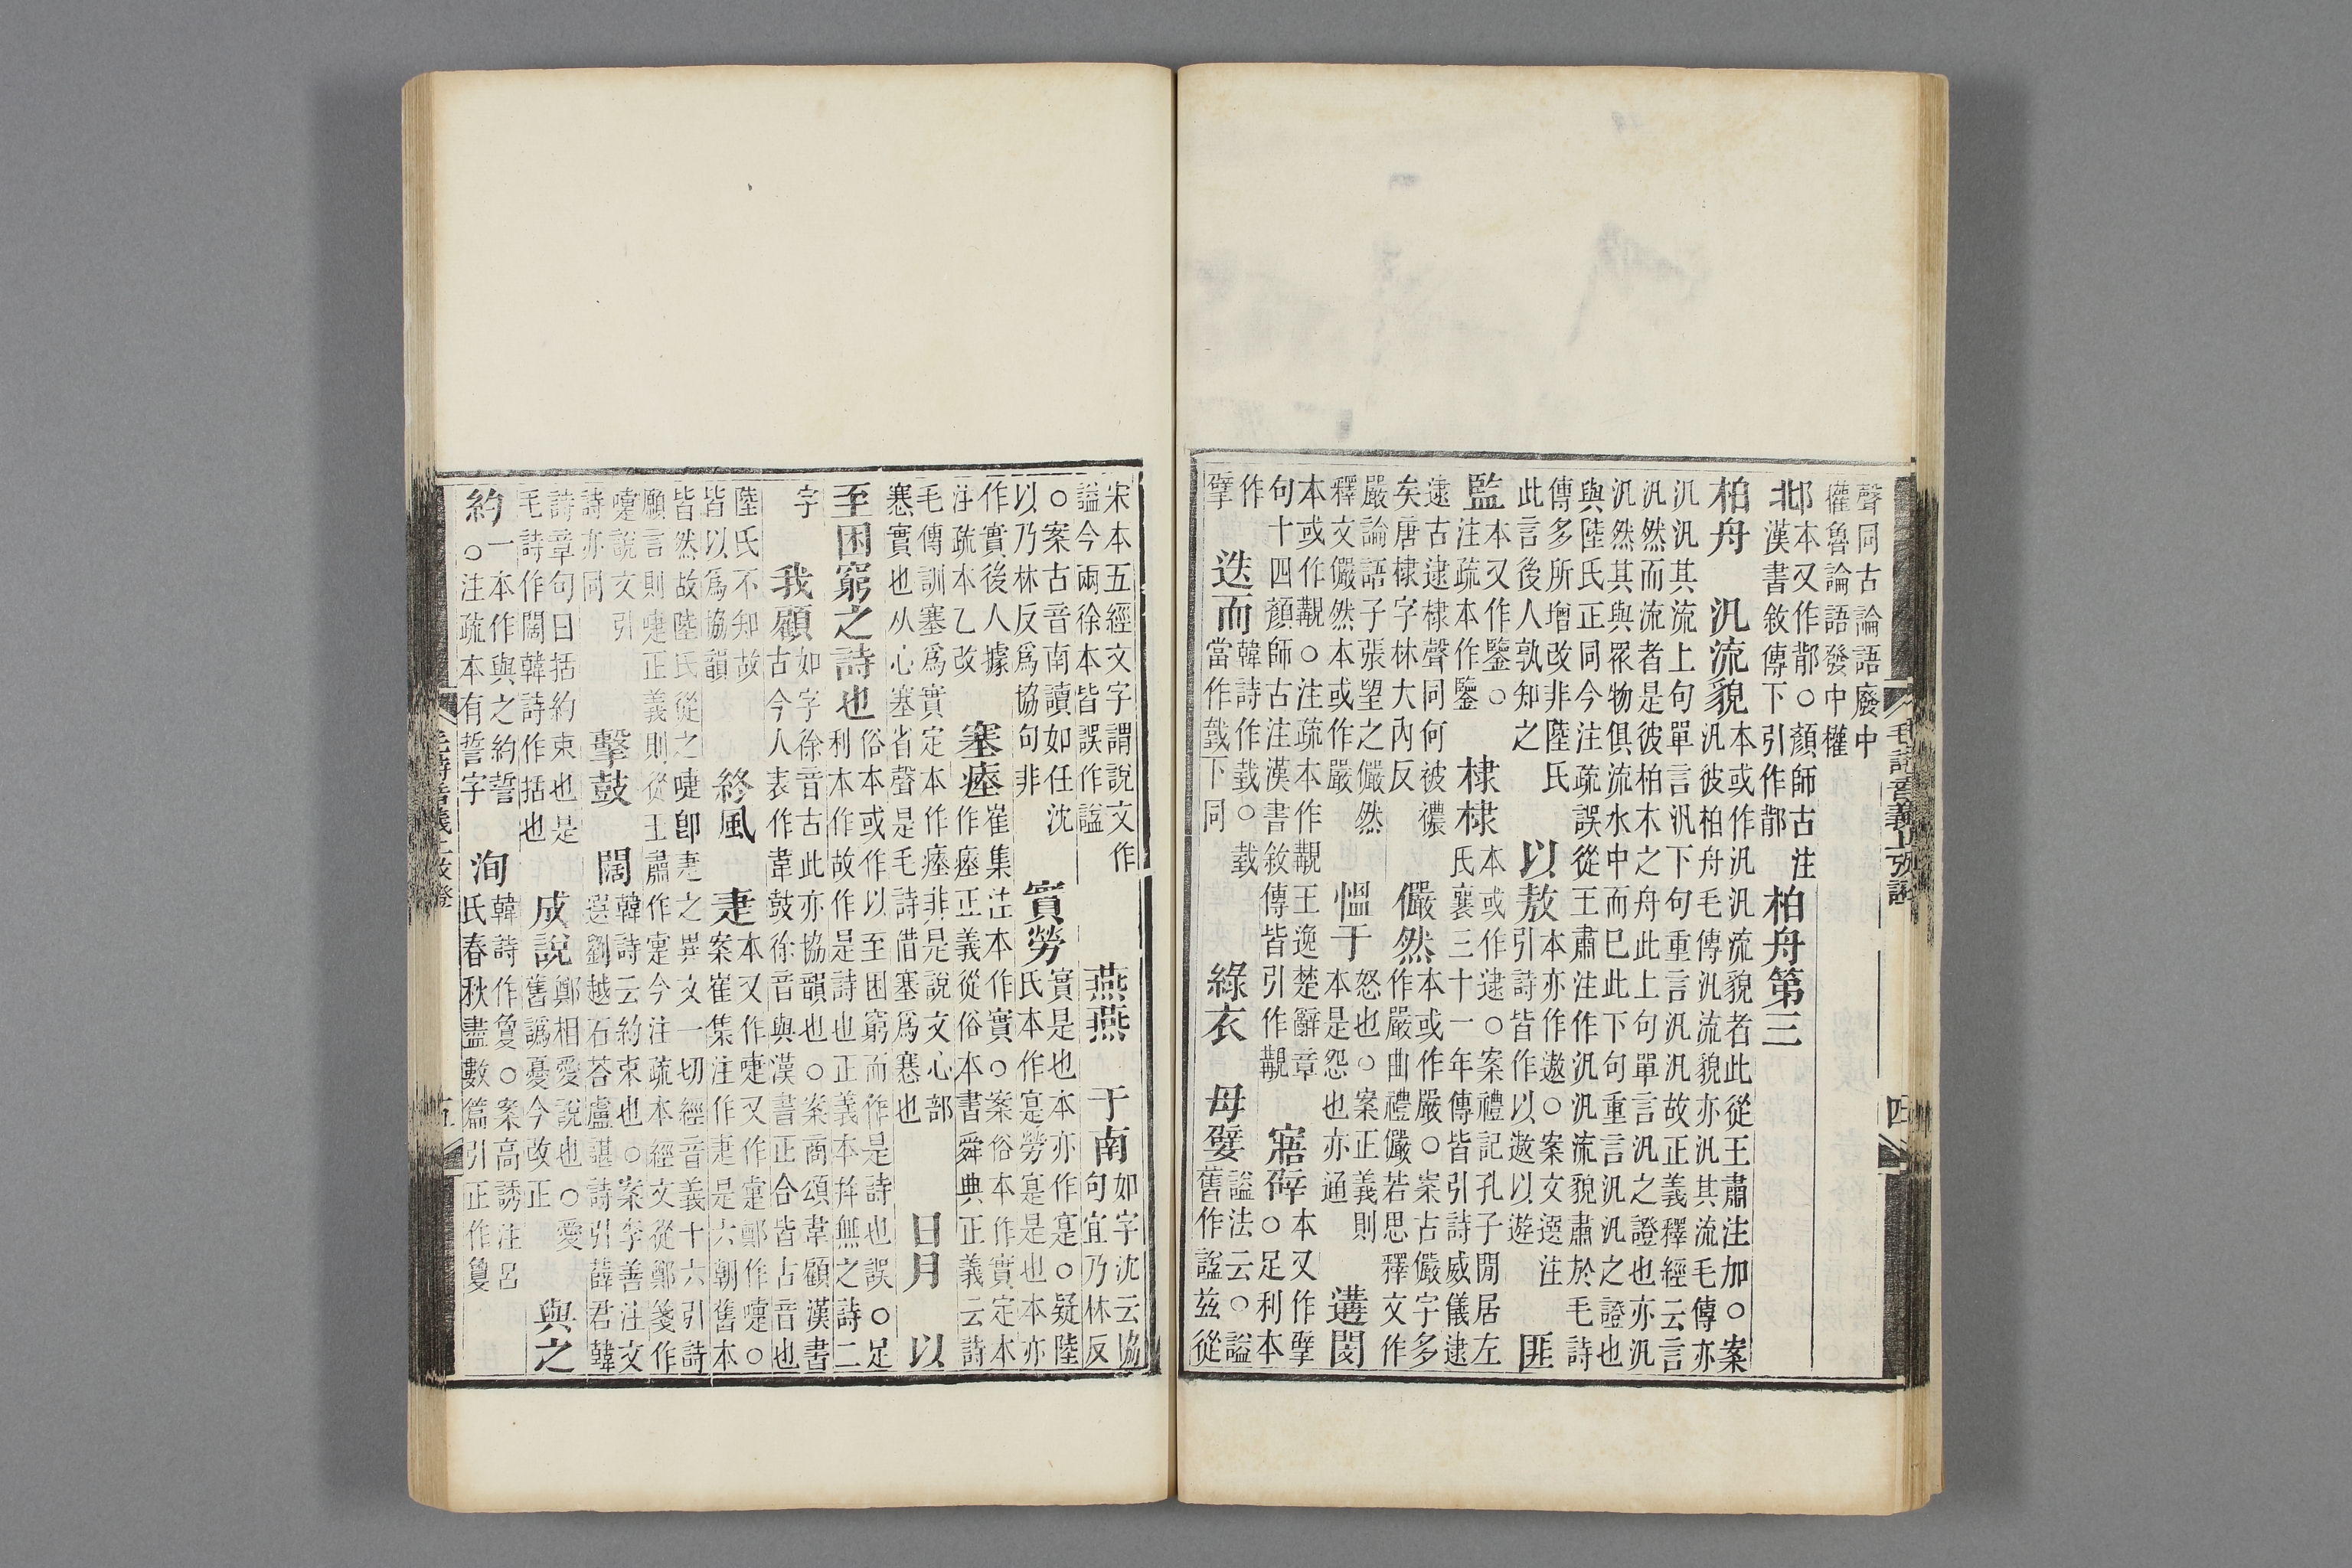 聲同古論語廢中
權魯論語發中權
邶
本又作鄁○顏師古注
漢書敘傳下引作鄁
柏舟第三
柏舟　汎流貌
本或作汎汎流貌者此從王肅注加○案
汎彼柏舟毛傳汎流貌亦汎其流毛傳亦
汎汎其流上句單言汎下句重言汎汎故正義釋經云言
汎然而流者是彼柏木之舟此上句單言汎之證也亦汎
汎然其與眾物俱流水中而已此下句重言汎汎之證也
與陸氏正同今注疏誤從王肅注作汎汎流貌肅於毛詩
傳多所增改非陸氏
此言後人孰知之
以敖
本亦作遨○案文選注
引詩皆作以遨以遊
匪
監
本又作鑒○
注疏本作鑒
棣棣
本或作逮○案禮記孔子閒居左
氏襄三十一年傳皆引詩威儀逮
逮古逮棣聲同何被襛
矣唐棣字林大內反
儼然
本或作嚴○案古儼字多
作嚴曲禮儼若思釋文作
嚴論語子張望之儼然
釋文儼然本或作嚴
慍于
怒也○案正義則
本是怨也亦通
遘閔
本或作覯○注疏本作覯王逸楚辭章
句十四顏師古注漢書敘傳皆引作覯
寤辟
本又作擘
○足利本
作
擘
迭而
韓詩作臷○臷
當作戜下同
綠衣　母嬖
謚法云○謚
舊作諡茲從
毛詩音義上攷證　四
宋本五經文字謂說文作
謚今兩徐本皆誤作諡
燕燕　于南
如字沈云協
句宜乃林反
○案古音南讀如任沈
以乃林反爲協句非
實勞
實是也本亦作寔○疑陸
氏本作寔勞寔是也本亦
作實後人據
注疏本乙改
塞瘞
崔集注本作實○案俗本作實定本
作瘞正義從俗本書舜典正義云詩
毛傳訓塞爲實定本作瘞非是說文心部
實也从心塞省聲是毛詩借塞爲也
日月　以
至困窮之詩也
俗本或作以至困窮而作是詩也誤○足
利本作故作是詩也正義本并無之詩二
字
我顧
如字徐音古此亦協韻也○案商頌韋顧漢書
古今人表作韋鼓徐音與漢書正合皆古音也
陸氏不知故
皆以爲協韻
終風　疌
本又作㖏又作疐鄭作嚏○
案崔集注作疌是六朝舊本
皆然故陸氏從之㖏卽疌之異文一切經音義十六引詩
願言則疌正義則從王肅作疐今注疏本經文從鄭箋作
嚏說文引
詩亦同
擊鼓　闊
韓詩云約束也○案李善注文
選劉越石荅盧諶詩引薛君韓
詩章句曰括約束也是
毛詩作闊韓詩作括也
成說
鄭相愛說也○愛
舊譌憂今改正
與之
約
一本作與之約誓
○注疏本有誓字
洵
韓詩作敻○案高誘注呂
氏春秋盡數篇引正作敻
五